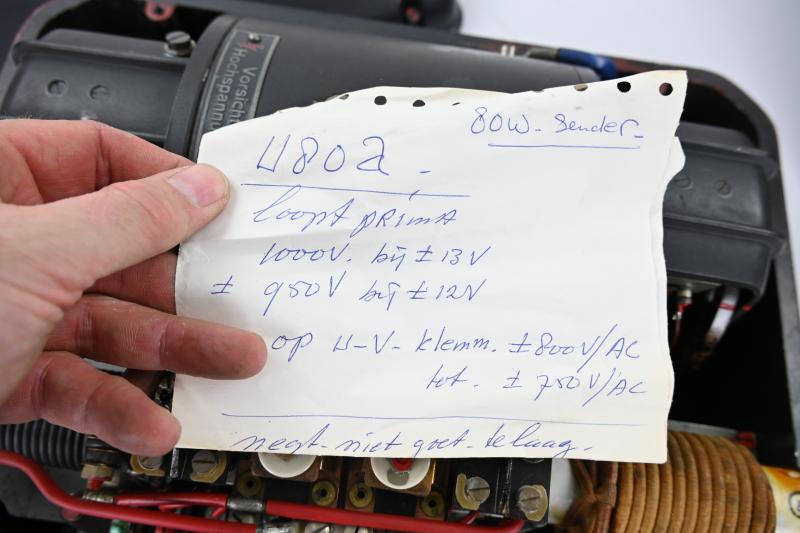 Vorsicht
Hochspannu
80W - Sender -
U80a -
loopt prima
1000V. bij ± 13V
± 950V bij ± 12V
op U-V- klemm. ± 800V/AC
tot. ± 750V/AC
negt-niet goet-te laag.